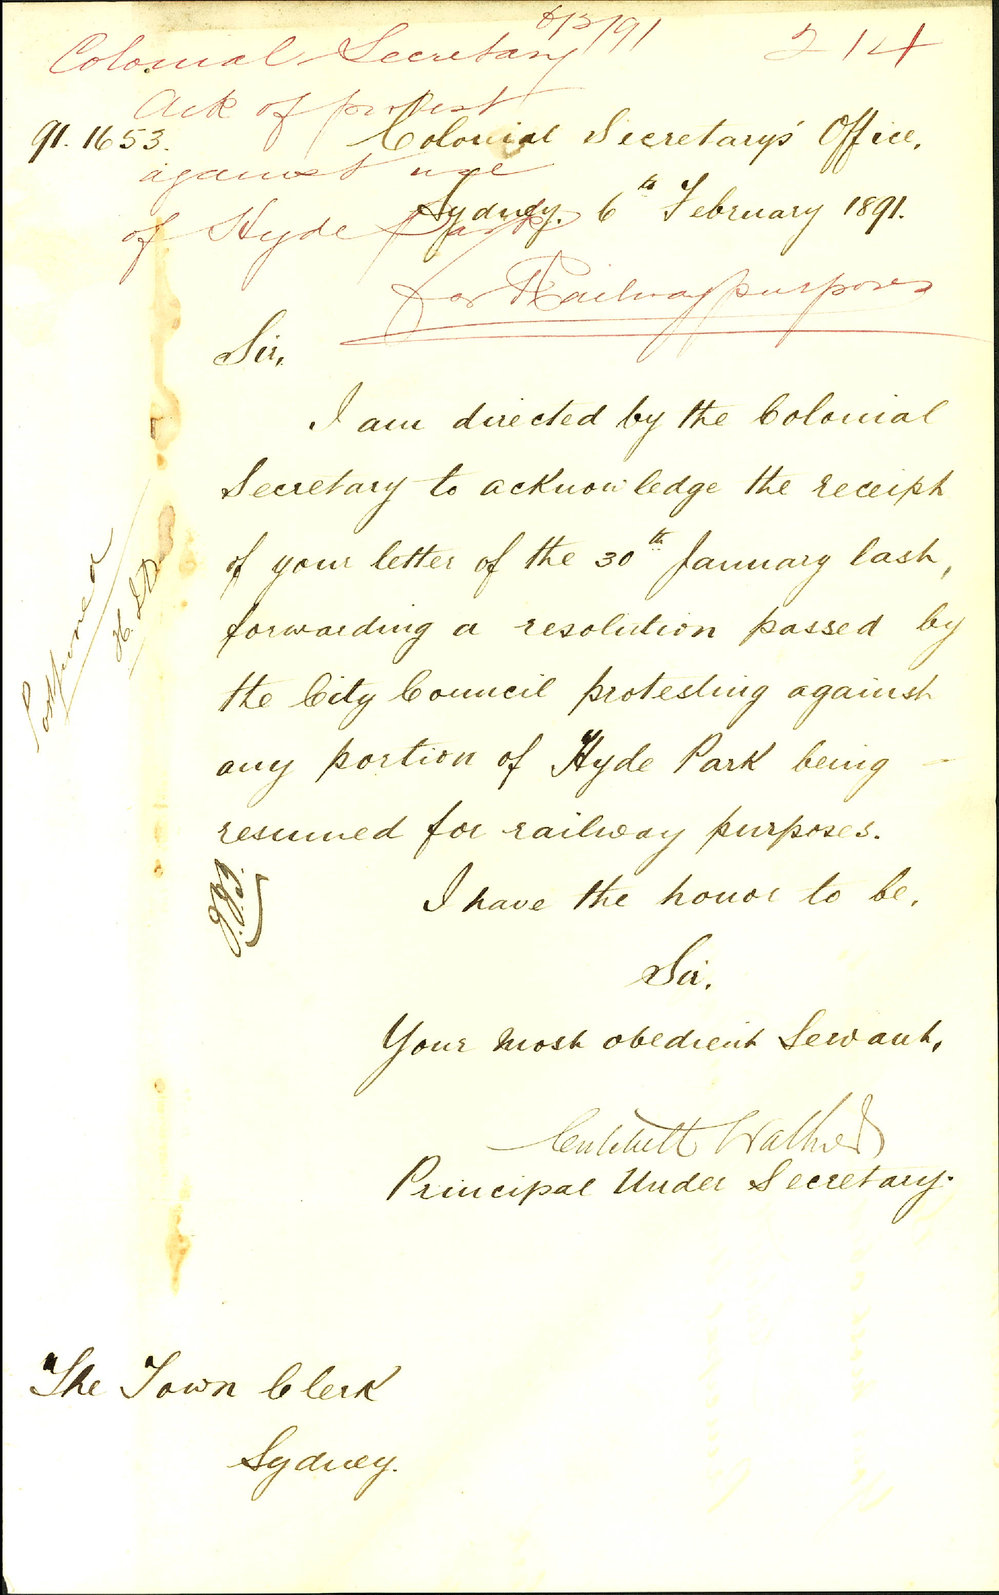 6/2/91
Colonial Secretary
214
Ack of protest
91.1653.
Colonial Secretary's Office,
against use
Sydney. 6th February 1891.
of Hyde Park
for Railway purposes
Sir,
I am directed by the Colonial
Secretary to acknowledge the receipt
of your letter of the 30th January last,
forwarding a resolution passed by
the City Council protesting against
any portion of Hyde Park being –
resumed for railway purposes.
I have the honor to be,
Sir.
Your most obedient Servant,
Critchett Walker
Principal Under Secretary.
The Town Clerk
Sydney.